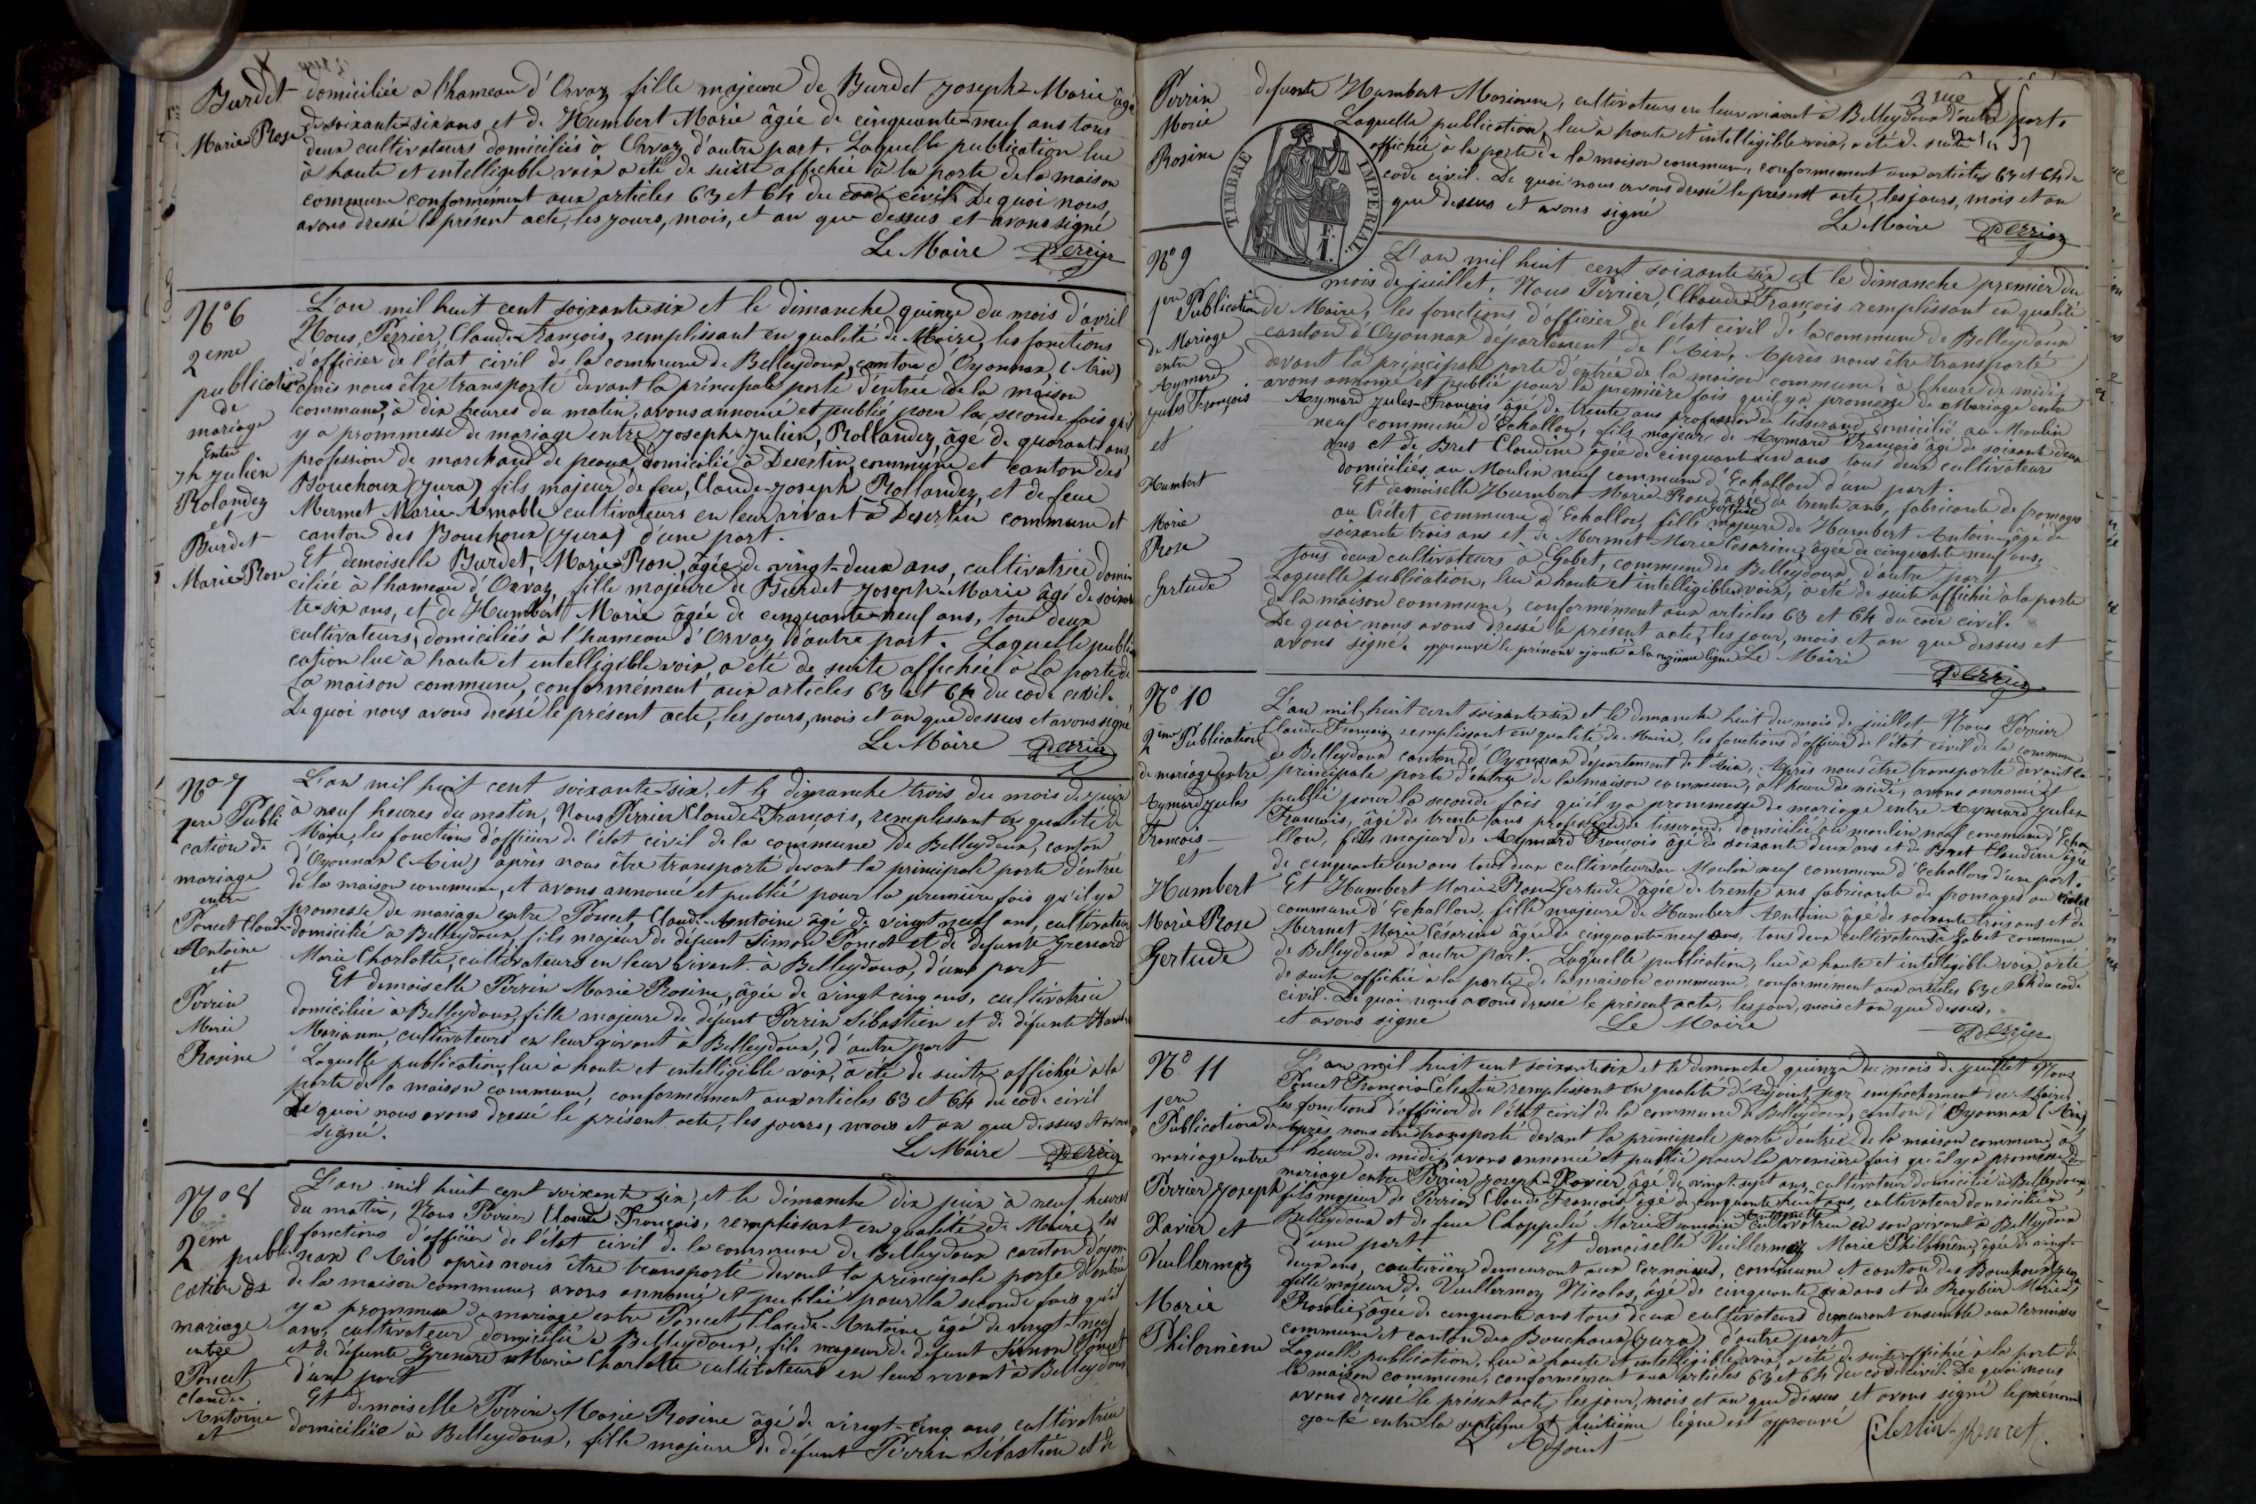 Burdet
Marie Rose
domiciliée à l'hameau d'Orvaz fille majeure de Burdet Joseph-Marie âgé
de soixante-six ans et de Humbert Marie âgée de cinquante-neuf ans tous
deux cultivateurs domiciliés à Orvaz d'autre part. Laquelle publication lue
à haute et intelligible voix a été de suite affichée à la porte de la maison
commune conformément aux articles 63 et 64 du code civil. De quoi nous
avons dressé le présent acte, les jours, mois, et an que dessus et avons signé
Le Maire Perrier
N° 6
2eme
publication
de
mariage
Entre
Jh Julien
Rolandez
et
Burdet
Marie Rose
L'an mil huit cent soixante-six et le dimanche quinze du mois d'avril
Nous, Perrier, Claude-François, remplissant en qualité de Maire, les fonctions
d'officier de l'état civil de la commune de Belleydoux, canton d'Oyonnax (Ain)
après nous être transporté devant la principale porte d'entrée de la maison
commune, à dix heures du matin, avons annoncé et publié pour la seconde fois qu'il
y a prommesse de mariage entre Joseph-Julien, Rollandez, âgé de quarante ans,
profession de marchand de peaux, domicilié à Desertin, commune et canton des
Bouchoux (Jura) fils majeur de feu, Claude-Joseph Rollandez, et de feue
Mermet Marie-Aimable cultivateurs en leur vivant à Desertin commune et
canton des Bouchoux (Jura) d'une part.
Et demoiselle Burdet, Marie-Rose, âgée de vingt-deux ans, cultivatrice domi
ciliée à l'hameau d'Orvaz, fille majeure de Burdet Joseph-Marie âgé de soixan
te-six ans, et de Humbert Marie âgée de cinquante-neuf ans, tous deux
cultivateurs, domiciliés à l'hameau d'Orvaz, d'autre part. Laquelle publi
cation lue à haute et intelligible voix, a été de suite affichée à la porte de
la maison commune, conformément aux articles 63 et 64 du code civil.
De quoi nous avons dressé le présent acte, les jours, mois et an que dessus et avons signé
Le Maire Perrier
N° 7
1ere Publi
cation de
mariage
entre
Poncet Claude
Antoine
et
Perrin
Marie
Rosine
L'an mil huit cent soixante-six, et le dimanche trois du mois de juin
à neuf heures du matin, Nous Perrier Claude-François, remplissant en qualité de
Maire, les fonctions d'officier de l'état civil de la commune de Belleydoux, canton
d'Oyonnax (Ain) après nous être transporté devant la principale porte d'entrée
de la maison commune, et avons annoncé et publié pour la première fois qu'il y a
promesse de mariage entre Poncet, Claude-Antoine âgé de vingt neuf ans, cultivateur
domicilié à Belleydoux, fils majeur de défunt Simon Poncet et de défunte Grenard
Marie Charlotte, cultivateurs en leur vivant à Belleydoux, d'une part
Et demoiselle Perrin Marie Rosine, âgée de vingt-cinq ans, cultivatrice
domiciliée à Belleydoux, fille majeure de défunt Perrin Sébastien et de défunte Humbert
Marianne, cultivateurs en leur vivant à Belleydoux, d'autre part
Laquelle publication, lue à haute et intelligible voix, a été de suite affichée à la
porte de la maison commune, conformément aux articles 63 et 64 du code civil
De quoi nous avons dressé le présent acte, les jours, mois et an que dessus et avons
signé.
Le Maire Perrier
N° 8
2em publi
cation de
mariage
entre
Poncet
Claude
Antoine
et
L'an mil huit cent soixante six, et le dimanche dix juin à neuf heures
du matin, Nous Perrier Claude François, remplissant en qualité de Maire, les
fonctions d'officier de l'état civil de la commune de Belleydoux canton d'Oyon
nax (Ain) après nous être transporté devant la principale porte d'entrée
de la maison commune, avons annoncé et publié pour la seconde fois qu'il
y a prommesse de mariage entre Poncet Claude-Antoine âgé de vingt-neuf
ans, cultivateur domicilié à Belleydoux, fils majeur de défunt Simon Poncet
et de défunte Grenard Marie Charlotte cultivateurs en leur vivant à Belleydoux
d'une part
Et demoiselle Perrin Marie Rosine âgé de vingt-cinq ans cultivatrice
domiciliée à Belleydoux, fille majeure de défunt Perrin Sébastien et de
Perrin
Marie
Rosine
defunte Humbert Marianne, cultivateurs en leur vivant à Belleydoux d'autre part.
Laquelle publication, lue à haute et intelligible voix, a été de suite
affichée à la porte de la maison commune, conformement aux articles 63 et 64 du
code civil. De quoi nous avons dressé le présent acte, les jours, mois et an
que dessus et avons signé
Le Maire Perrier
TIMBRE IMPERIAL.
N° 9
1ere Publication
de Mariage
entre
Aymard
Jules François
et
Humbert
Marie
Rose
Gertude
L'an mil huit cent soixante-six et le dimanche premier du
mois de juillet, Nous Perrier, Claude-François remplissant en qualité
de Maire, les fonctions d'officier de l'état civil de la commune de Belleydoux
canton d'Oyonnax département de l'Ain, Après nous être transporté
devant la principale porte d'entrée de la maison commune, à l'heure de midi,
avons annoncé et publié pour la première fois qu'il y a promesse de Mariage entre
Aymard Jules-François âgé de trente ans profession de tisserand domicilié au Moulin
neuf commune d'Echallon, fils majeur de Aymard François âgé de soixante deux
ans et de Bret Claudine âgée de cinquante un ans tous deux cultivateurs
domiciliés au Moulin neuf commune d'Echallon d'une part.
Et demoiselle Humbert Marie-Rose Gertrude âgée de trente ans, fabricante de fromages
au Crétet commune d'Echallon, fille majeure de Humbert Antoine âgé de
soixante trois ans et de Mermet Marie Césarine, âgée de cinquante neuf ans,
tous deux cultivateurs à Gobet, commune de Belleydoux, d'autre part
Laquelle publication, lue à haute et intelligible voix, a été de suite affichée à la porte
de la maison commune, conformément aux articles 63 et 64 du code civil.
De quoi nous avons dressé le présent acte, les jour, mois et an que dessus et
avons signé. approuvé le prénom ajouté à la onzième ligne Le Maire
Perrier
N° 10
2eme Publication
de mariage entre
Aymard Jules
François
et
Humbert
Marie Rose
Gertude
L'an mil huit cent soixante-six et le dimanche huit du mois de juillet Nous Perrier
Claude-François remplissant en qualité de Maire, les fonctions d'officier de l'état civil de la commune
de Belleydoux canton d'Oyonnax département de l'Ain, Après nous être transporté devant la
principale porte d'entrée de la maison commune, à l'heure de midi, avons annoncé et
publié pour la seconde fois qu'il y a prommesse de mariage entre Aymard Jules
François, âgé de trente ans profession de tisserand domicilié au moulin neuf commune d'Echa
llon, fils majeur de Aymard François âgé de soixante deux ans et de Bret Claudine âgée
de cinquante un ans tous deux cultivateurs au Moulin neuf commune d'Echallon d'une part.
Et Humbert Marie-Rose-Gertude âgée de trente ans fabricante de fromages au Crétet
commune d'Echallon, fille majeure de Humbert Antoine âgé de soixante trois ans et de
Mermet Marie Césarine âgée de cinquante-neuf ans, tous deux cultivateurs à Gobet commune
de Belleydoux d'autre part. Laquelle publication, lue à haute et intelligible voix a été
de suite affichée à la porte de la maison commune, conformement aux articles 63 et 64 du code
civil. De quoi nous avons dressé le présent acte, les jour, mois et an que dessus,
et avons signé Le Maire
Perrier
N° 11
1ere
Publication de
mariage entre
Perrier Joseph
Xavier et
Vuillermoz
Marie
Philomène
L'an mil huit cent soixante six et le dimanche quinze du mois de juillet Nous
Poncet François-Célestin remplissant en qualité d'Adjoint, par empêchement du Maire,
les fonctions d'officier de l'état civil de la commune de Belleydoux, canton d'Oyonnax (Ain)
Après, nous être transporté devant la principale porte d'entrée de la maison commune, à
l'heure de midi, avons annoncé et publié pour la première fois qu'il y a promesse de
mariage entre Perrier Joseph-Xavier âgé de vingt-sept ans, cultivateur domicilié à Belleydoux,
fils majeur de Perrier Claude François, âgé de cinquante huit ans, cultivateur domicilié à
Belleydoux et de feue Chappelu Marie Françoise cultivatrice en son vivant à Belleydoux
d'une part. Et demoiselle Vuillermoz Marie Philomène, âgée de vingt
deux ans, couturière demeurant aux Cernoises, commune et canton des Bouchoux (Jura)
fille majeure de Vuillermoz Nicolas, âgé de cinquante six ans et de Roybier Marie
Rosalie, âgée de cinquante ans tous deux cultivateurs demeurant ensemble aux Cernoises
commune et canton des Bouchoux (Jura) d'autre part
Laquelle publication, lue à haute et intelligible voix, a été de suite affichée à la porte de
la maison commune, conformément aux articles 63 et 64 du code civil. De quoi nous
avons dressé le présent acte, les jour, mois et an que dessus et avons signé le prenom
ajouté entre la septième et huitième ligne est approuvé
L'Adjoint Célestin Poncet.